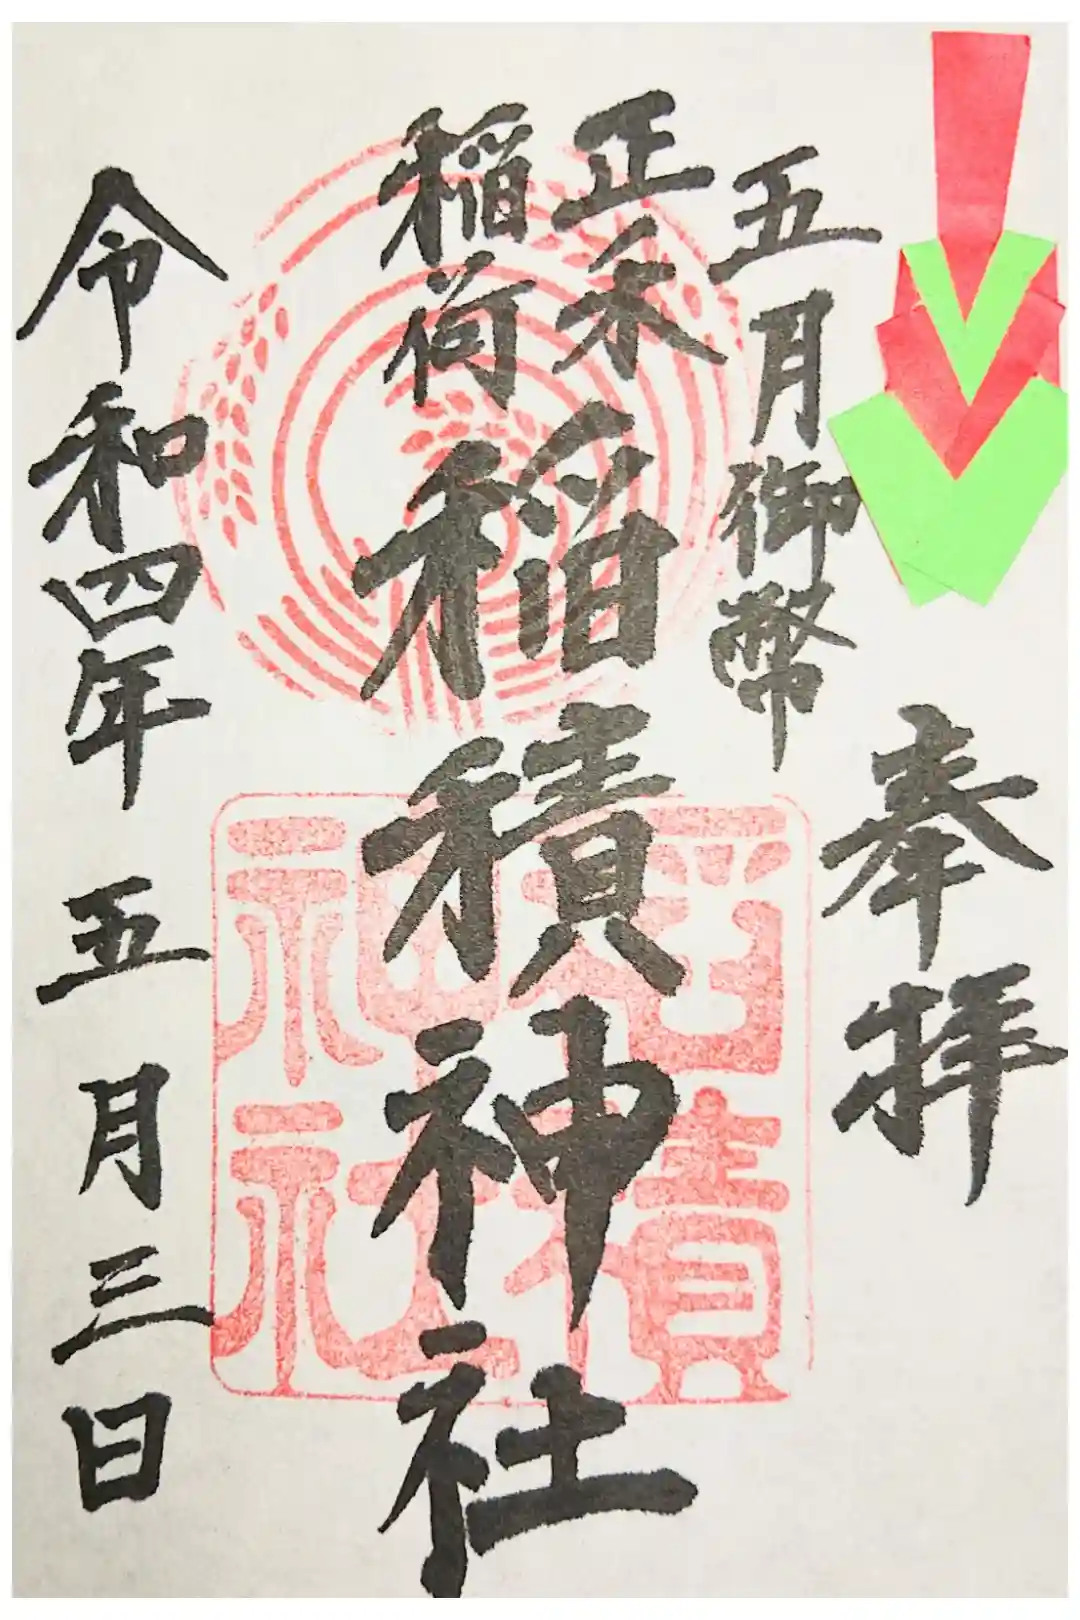 奉拝
五月御幣
正木
稲荷
稲積神社
稲積
神社
令和四年 五月三日